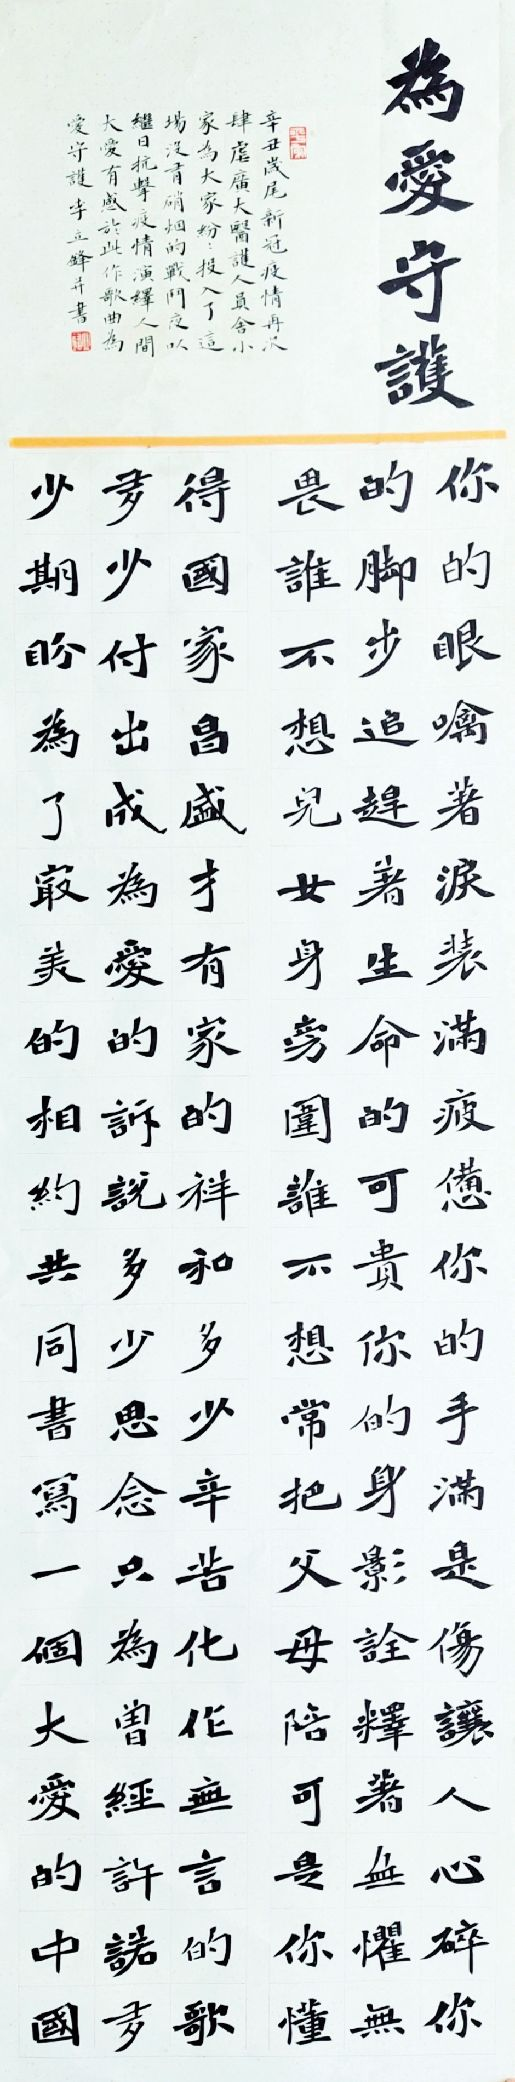 為愛守護
辛丑歲尾新冠疫情再次
肆虐廣大醫護人員舍小
家為大家紛紛投入了這
場沒有硝烟的戰鬥夜以
繼日抗擊疫情演繹人間
大愛有感於此作歌曲為
愛守護李立鋒并書
你的眼噙著淚裝滿疲憊你的手滿是傷讓人心碎你
的脚步追趕著生命的可貴你的身影詮釋著無懼無
畏誰不想兒女身旁圍誰不想常把父母陪可是你懂
得國家昌盛才有家的祥和多少辛苦化作無言的歌
多少付出成為愛的訴說多少思念只為曾經許諾多
少期盼為了最美的相約共同書寫一個大愛的中國